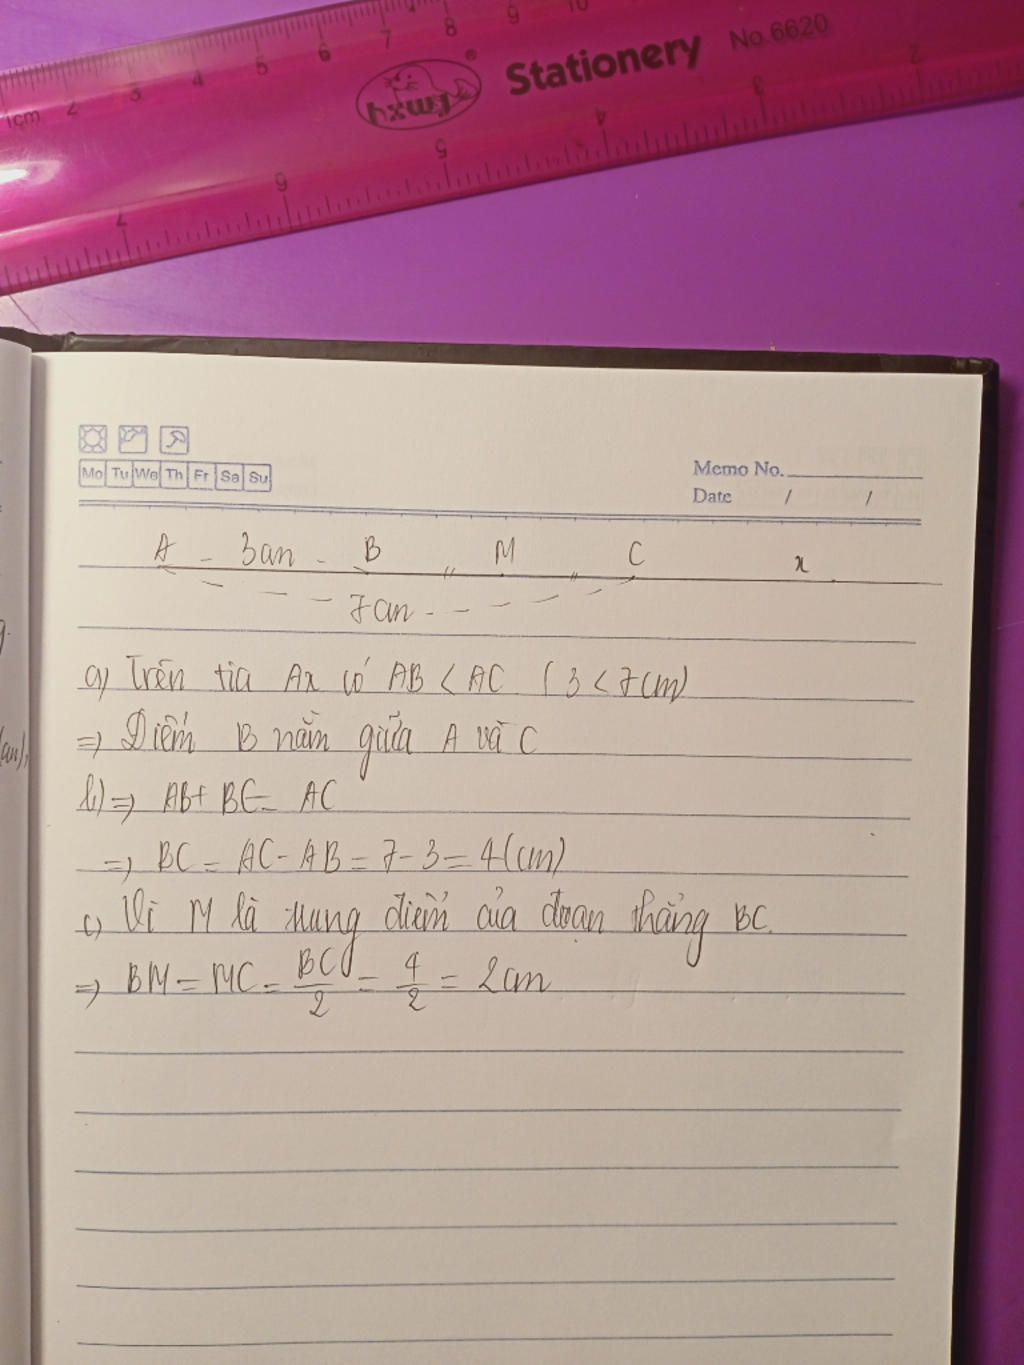 1cm 2 3 4 5 6 7 8 9 10
hxwj ® Stationery No.6620
7 6 5 4 3 2
Mo Tu We Th Fr Sa Su
Memo No.
Date / /
A - 3cm - B M C x
7cm
a) Trên tia Ax có AB < AC (3 < 7cm)
=> Điểm B nằm giữa A và C
b) => AB + BC = AC
=> BC = AC - AB = 7 - 3 = 4(cm)
c) Vì M là trung điểm của đoạn thẳng BC.
=> BM = MC = BC/2 = 4/2 = 2cm